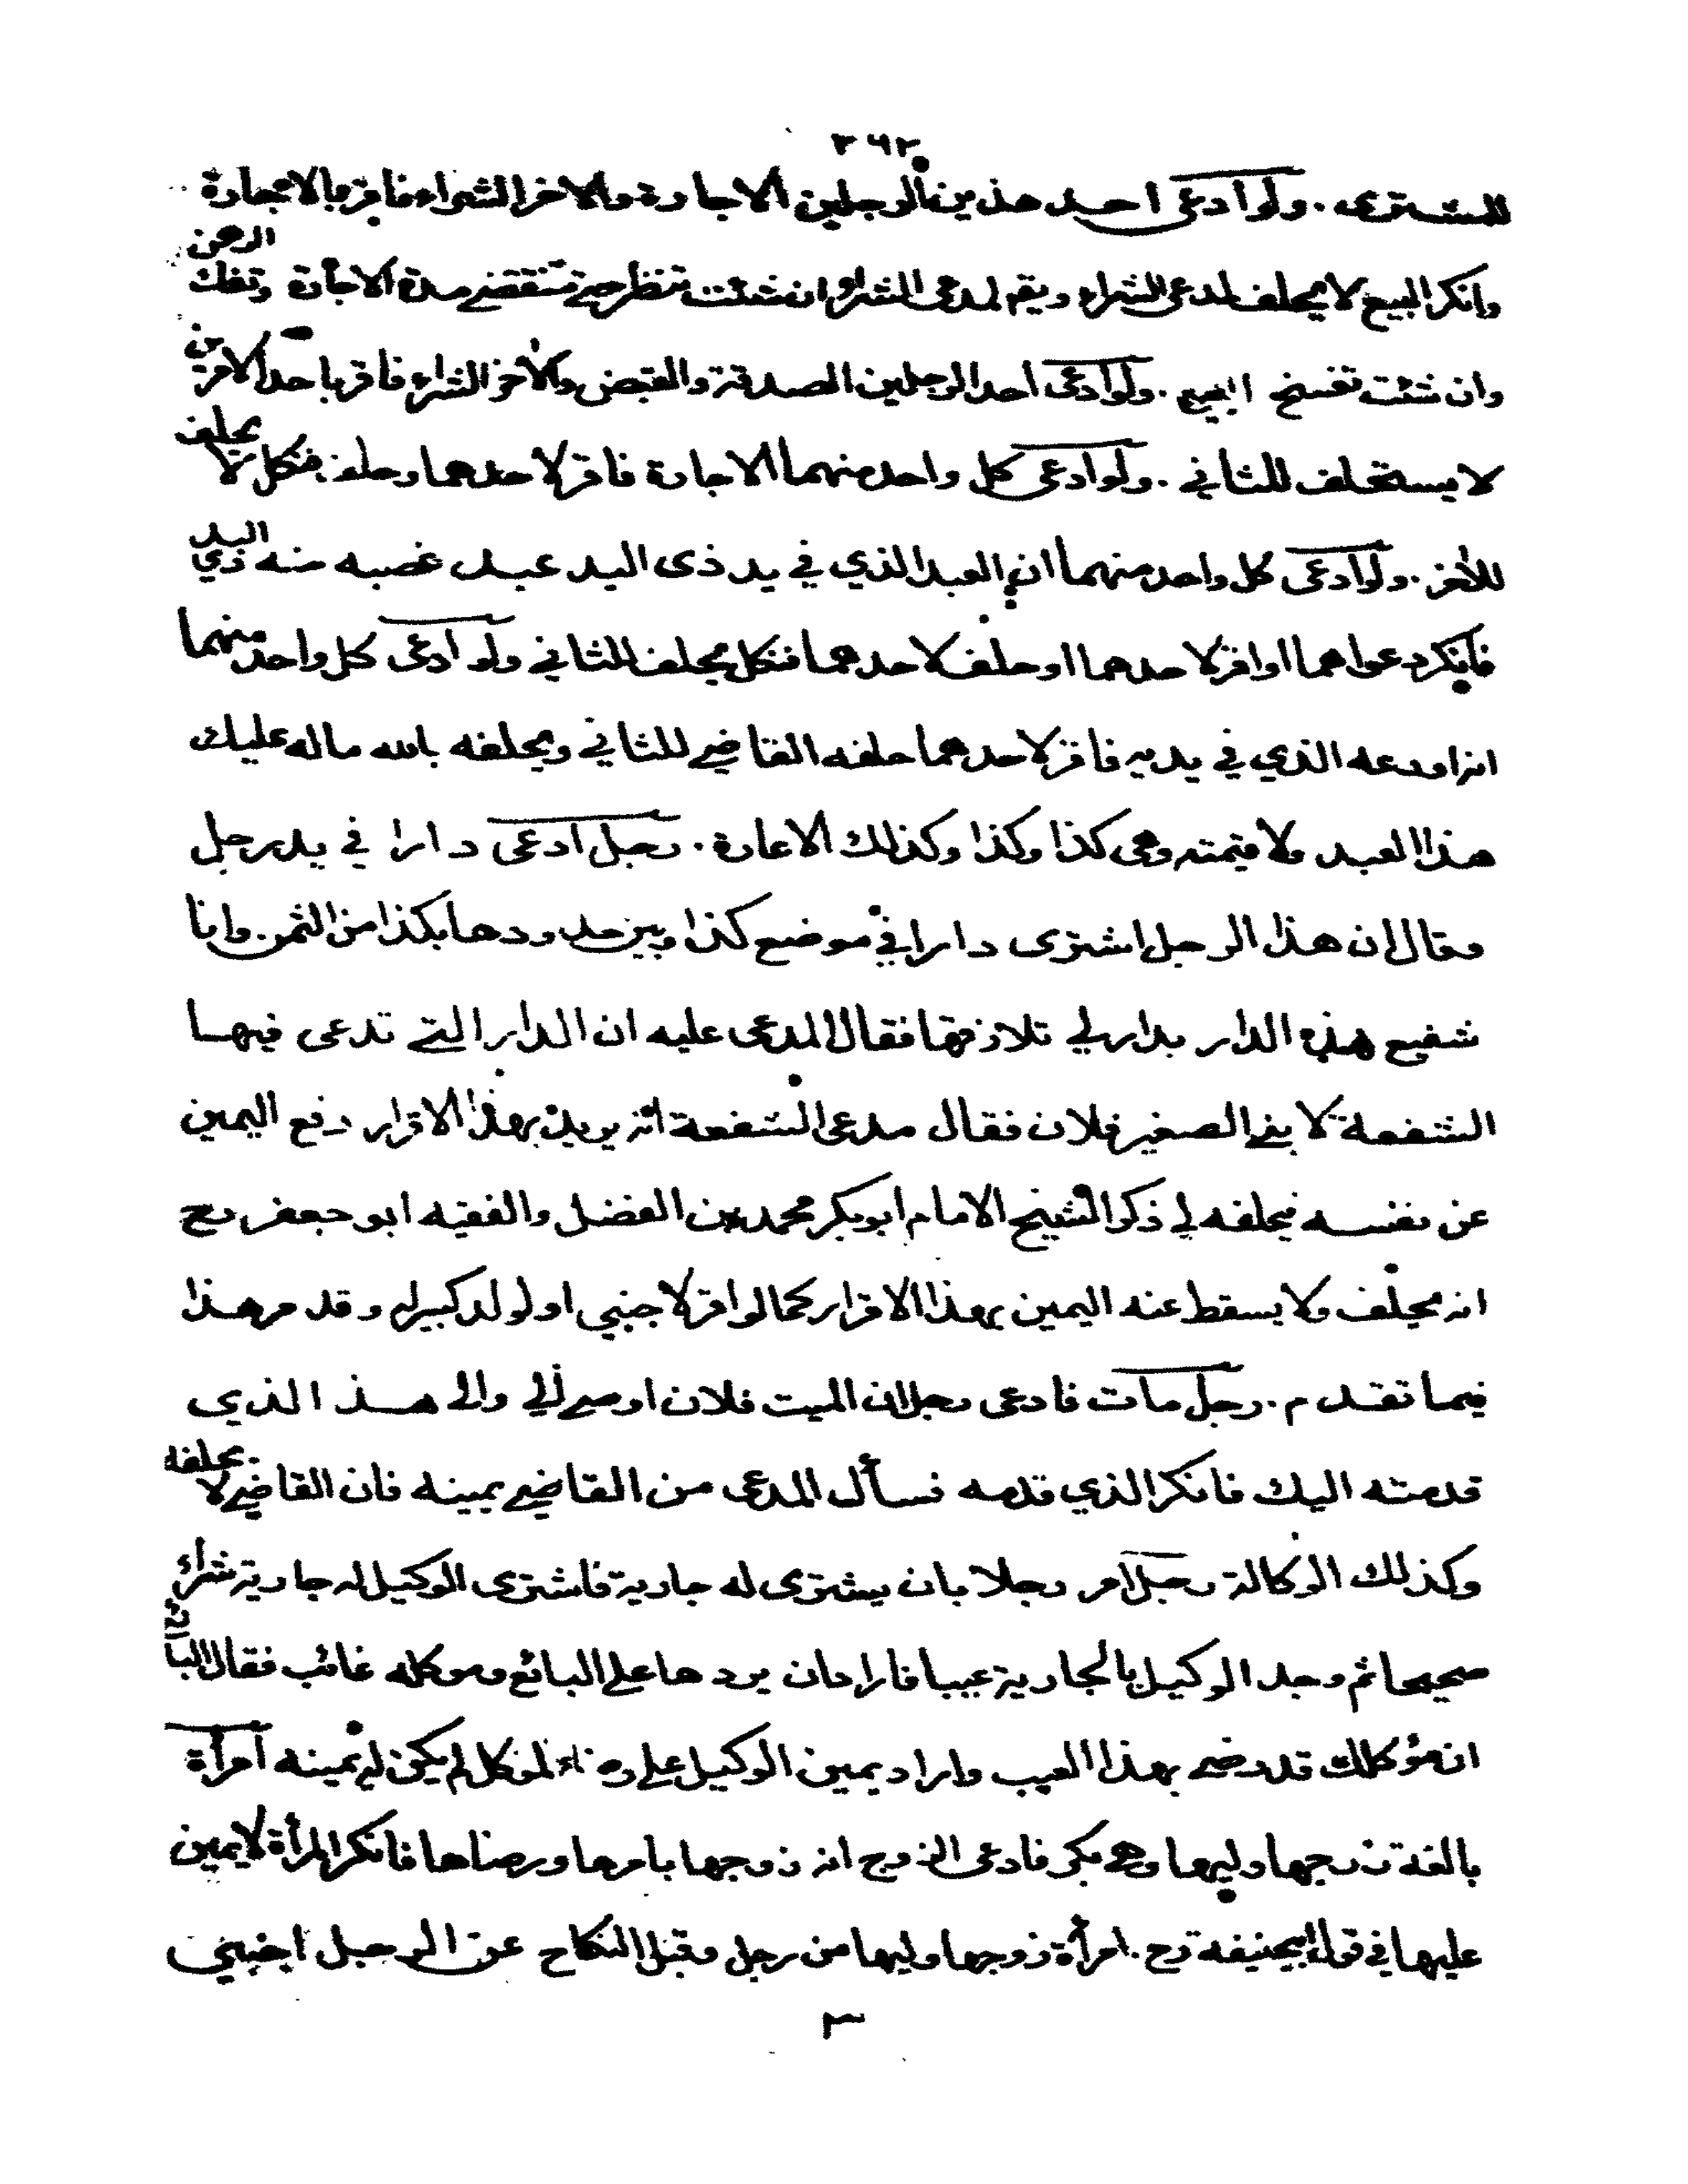 ٣٦٢
للمشترى . ولو ادعى احد هذين الرجلين الاجارة والاخر الشراء فاقر بالاجارة
وانكر البيع لا يحلف لمدعى الشراء ويقم لمدعى الشراء ان شئت تنظر حتى تنقضى مدة الاجارة وتفك الرهن
وان شئت تفسخ البيع . ولو ادعى احد الرجلين الصدقة والقبض والاخر الشراء فاقر باحد الامرين
لا يستحلف للثانى . ولو ادعى كل واحد منهما الاجارة فاقر لاحدهما وحلف فنكل لا يحلف
للأخر . ولو ادعى كل واحد منهما ان العبد الذي في يد ذى اليد عبد غصبه منه ذي اليد
فانكر دعواهما او اقر لاحدهما او حلف لاحدهما فنكل يحلف للثانى ولو ادعى كل واحد منهما
انه اودعه الذي في يديه فاقر لاحدهما حلفه القاضي للثاني ويحلفه بالله ماله عليك
هذا العبد ولا قيمته وهى كذا وكذا وكذلك الاعارة . رجل ادعى دارا في يد رجل
وقال ان هذا الرجل اشترى دارا في موضع كذا وبين حدودها بكذا من الثمن وانا
شفيع هذه الدار بدار لي تلازقها فقال المدعى عليه ان الدار التى تدعى فيها
الشفعة لابنى الصغير فلان فقال مدعى الشفعة انه يريد بهذا الاقرار دفع اليمين
عن نفسه فيحلفه لي ذكر الشيخ الامام ابو بكر محمد بن الفضل والفقيه ابو جعفر رح
انه يحلف ولا يسقط عنه اليمين بهذا الاقرار كما لو اقر لاجنبي او لولد كبير له وقد مر هذا
فيما تقدم . رجل مات فادعى رجل ان الميت فلان اوصى الي والى هذا الذي
قدمته اليك فانكر الذي قدمه فسأل المدعى من القاضي يمينه فان القاضي لا يحلفه
وكذلك الوكالة رجل امر رجلا بان يشترى له جارية فاشترى الوكيل له جارية شراء
صحيحا ثم وجد الوكيل بالجارية عيبا فاراد ان يردها على البائع وموكله غائب فقال البائع
ان موكلك قد رضى بهذا العيب واراد يمين الوكيل على رضاء الموكل لم يكن له يمينه امرأة
بالغة زوجها وليها وهى بكر فادعى الزوج انه زوجها بامرها ورضاها فانكر المرأة لا يمين
عليها في قول ابيحنيفة رح . امرأة زوجها وليها من رجل وقبل النكاح عن الرجل اجنبي